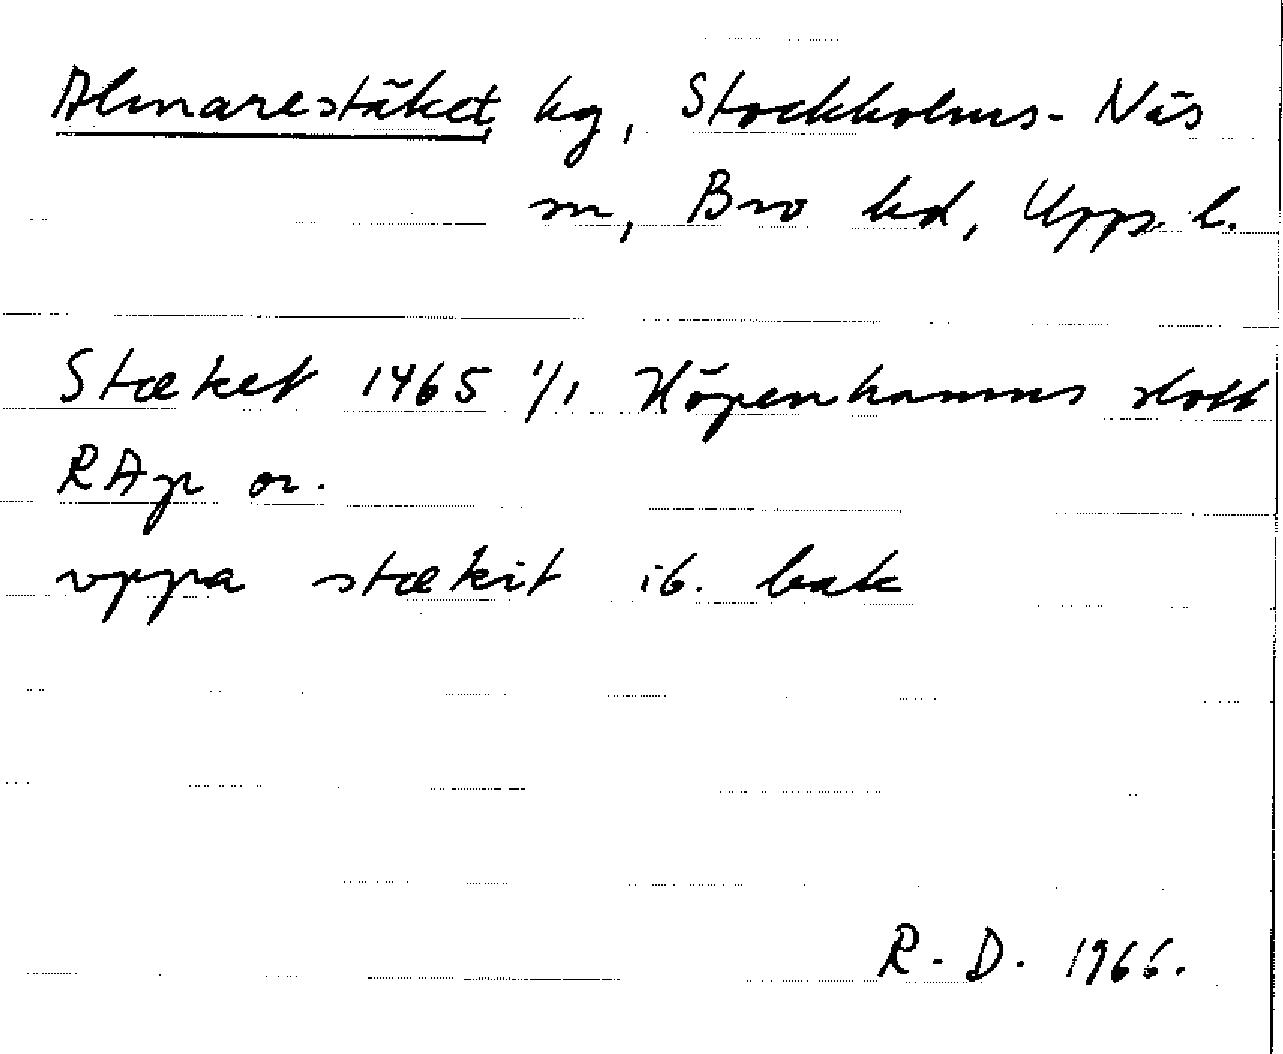 Almarestäket hg, Stockholms-Näs
sn, Bro hd, Upps. l.
Stæket 1465 1/1 Köpenhamns slott
RAp or.
vppa stækit ib. bak
R-D. 1966.